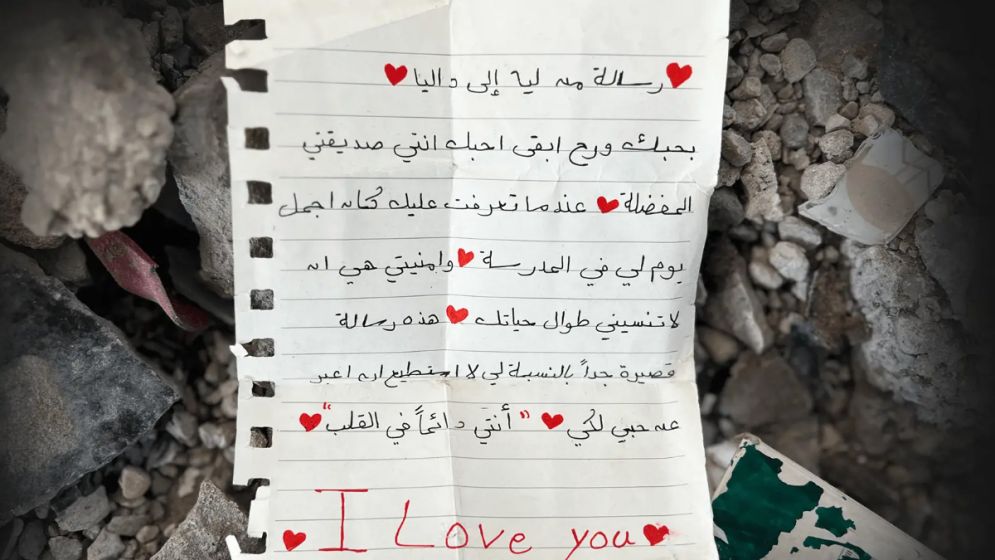 ❤رسالة من ليا إلى داليا❤
بحبك ورح ابقى احبك انتي صديقتي
المفضلة❤ عندما تعرفت عليك كان اجمل
يوم لي في المدرسة❤ وامنيتي هي ان
لا تنسيني طوال حياتك❤ هذه رسالة
قصيرة جداً بالنسبة لي لا استطيع ان اعبر
عن حبي لكي❤ "أنتي دائماً في القلب"❤
❤I Love you❤